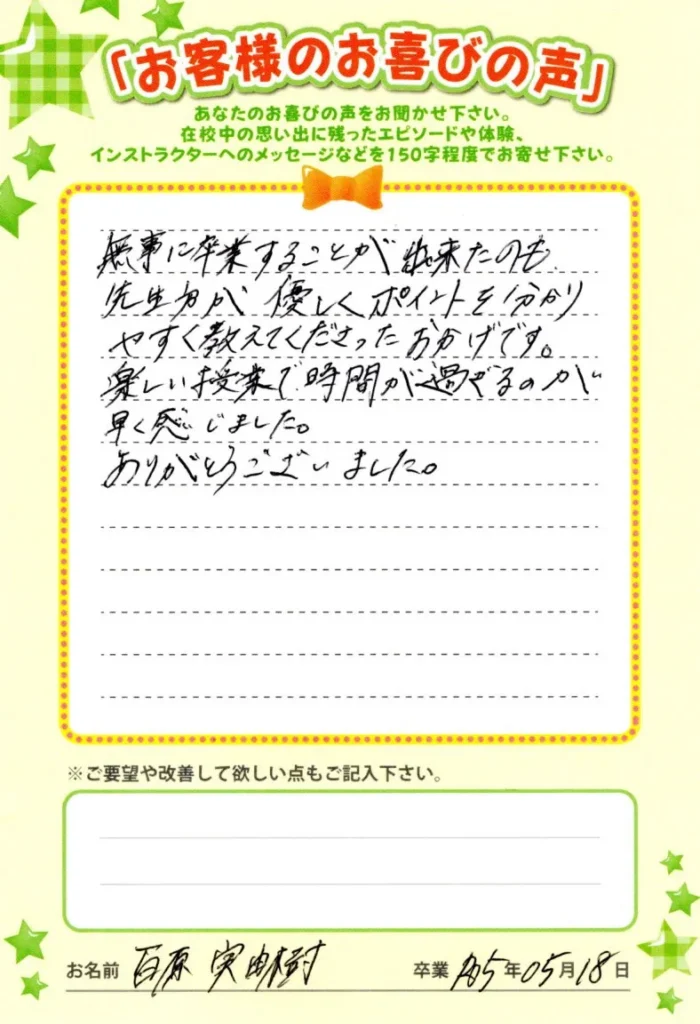 「お客様のお喜びの声」
あなたのお喜びの声をお聞かせ下さい。
在校中の思い出に残ったエピソードや体験、
インストラクターへのメッセージなどを150字程度でお寄せ下さい。
無事に卒業することが出来たのも
先生方が優しくポイントを分かり
やすく教えてくださったおかげです。
楽しい授業で時間が過ぎるのが
早く感じました。
ありがとうございました。
※ご要望や改善して欲しい点もご記入下さい。
お名前 百原 実由樹
卒業 年05月18日